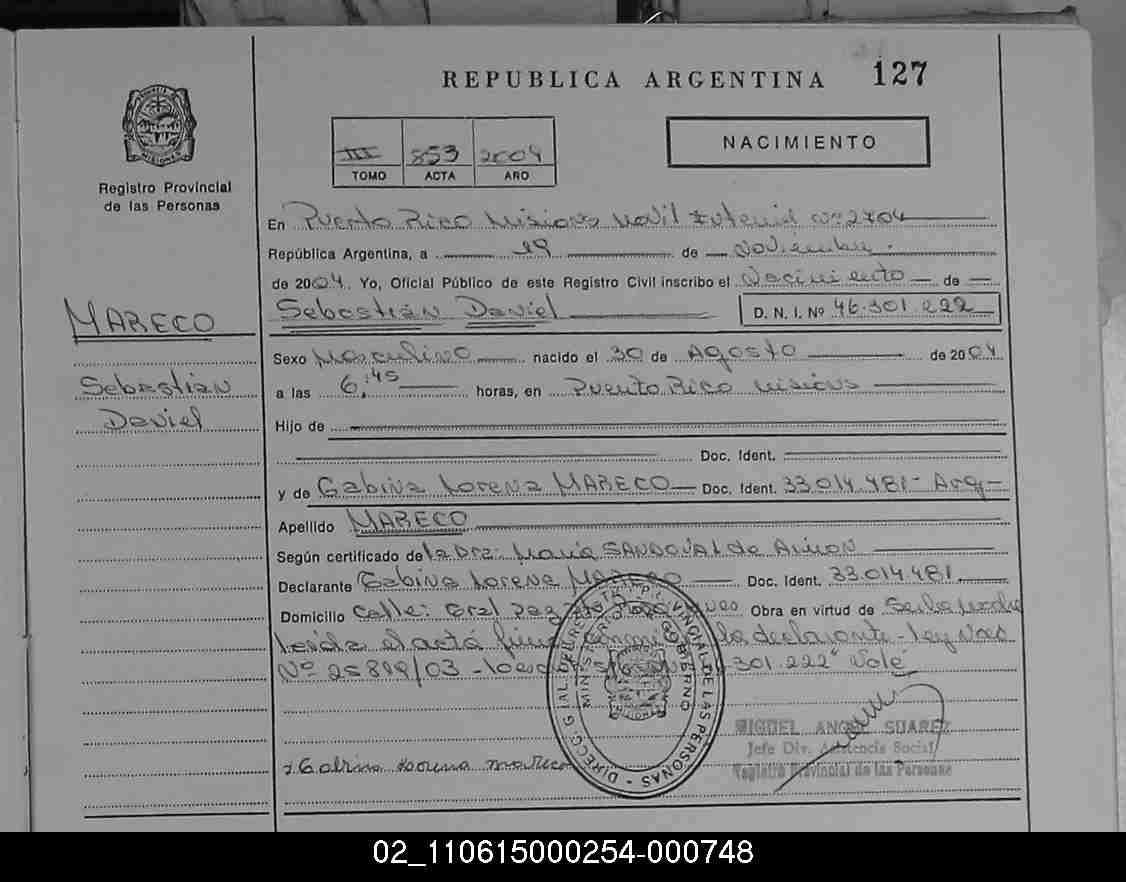 REPUBLICA ARGENTINA 127
NACIMIENTO
III 853 2004
TOMO ACTA AÑO
PROVINCIA DE MISIONES
Registro Provincial
de las Personas
MARECO
Sebastián
Daniel
En Puerto Rico Misiones Movil Nº 2704
República Argentina, a 19 de Noviembre.
de 2004. Yo, Oficial Público de este Registro Civil inscribo el Nacimiento de
Sebastián Daniel D. N. I. Nº 46.301.222
Sexo Masculino nacido el 30 de Agosto de 2004
a las 6,45 horas, en Puerto Rico Misiones
Hijo de
Doc. Ident.
y de Gabina Lorena MARECO Doc. Ident. 33.014.481 - Arg -
Apellido MARECO
Según certificado de la Dra: María SANDOVAL de
Declarante Gabina Lorena MARECO Doc. Ident. 33.014.481
Domicilio Calle: Gral Paz Obra en virtud de
Leída el acta la declarante - Ley Nac
Nº 25819/03 - 301.222" Vale
DIRECC. GRAL. DEL REGISTRO PROVINCIAL DE LAS PERSONAS -
MINISTERIO DE GOBIERNO
MIGUEL ANGEL SUAREZ
Jefe Div. Asistencia Social
Registro Provincial de las Personas
Gabina Lorena Mareco
02_110615000254-000748